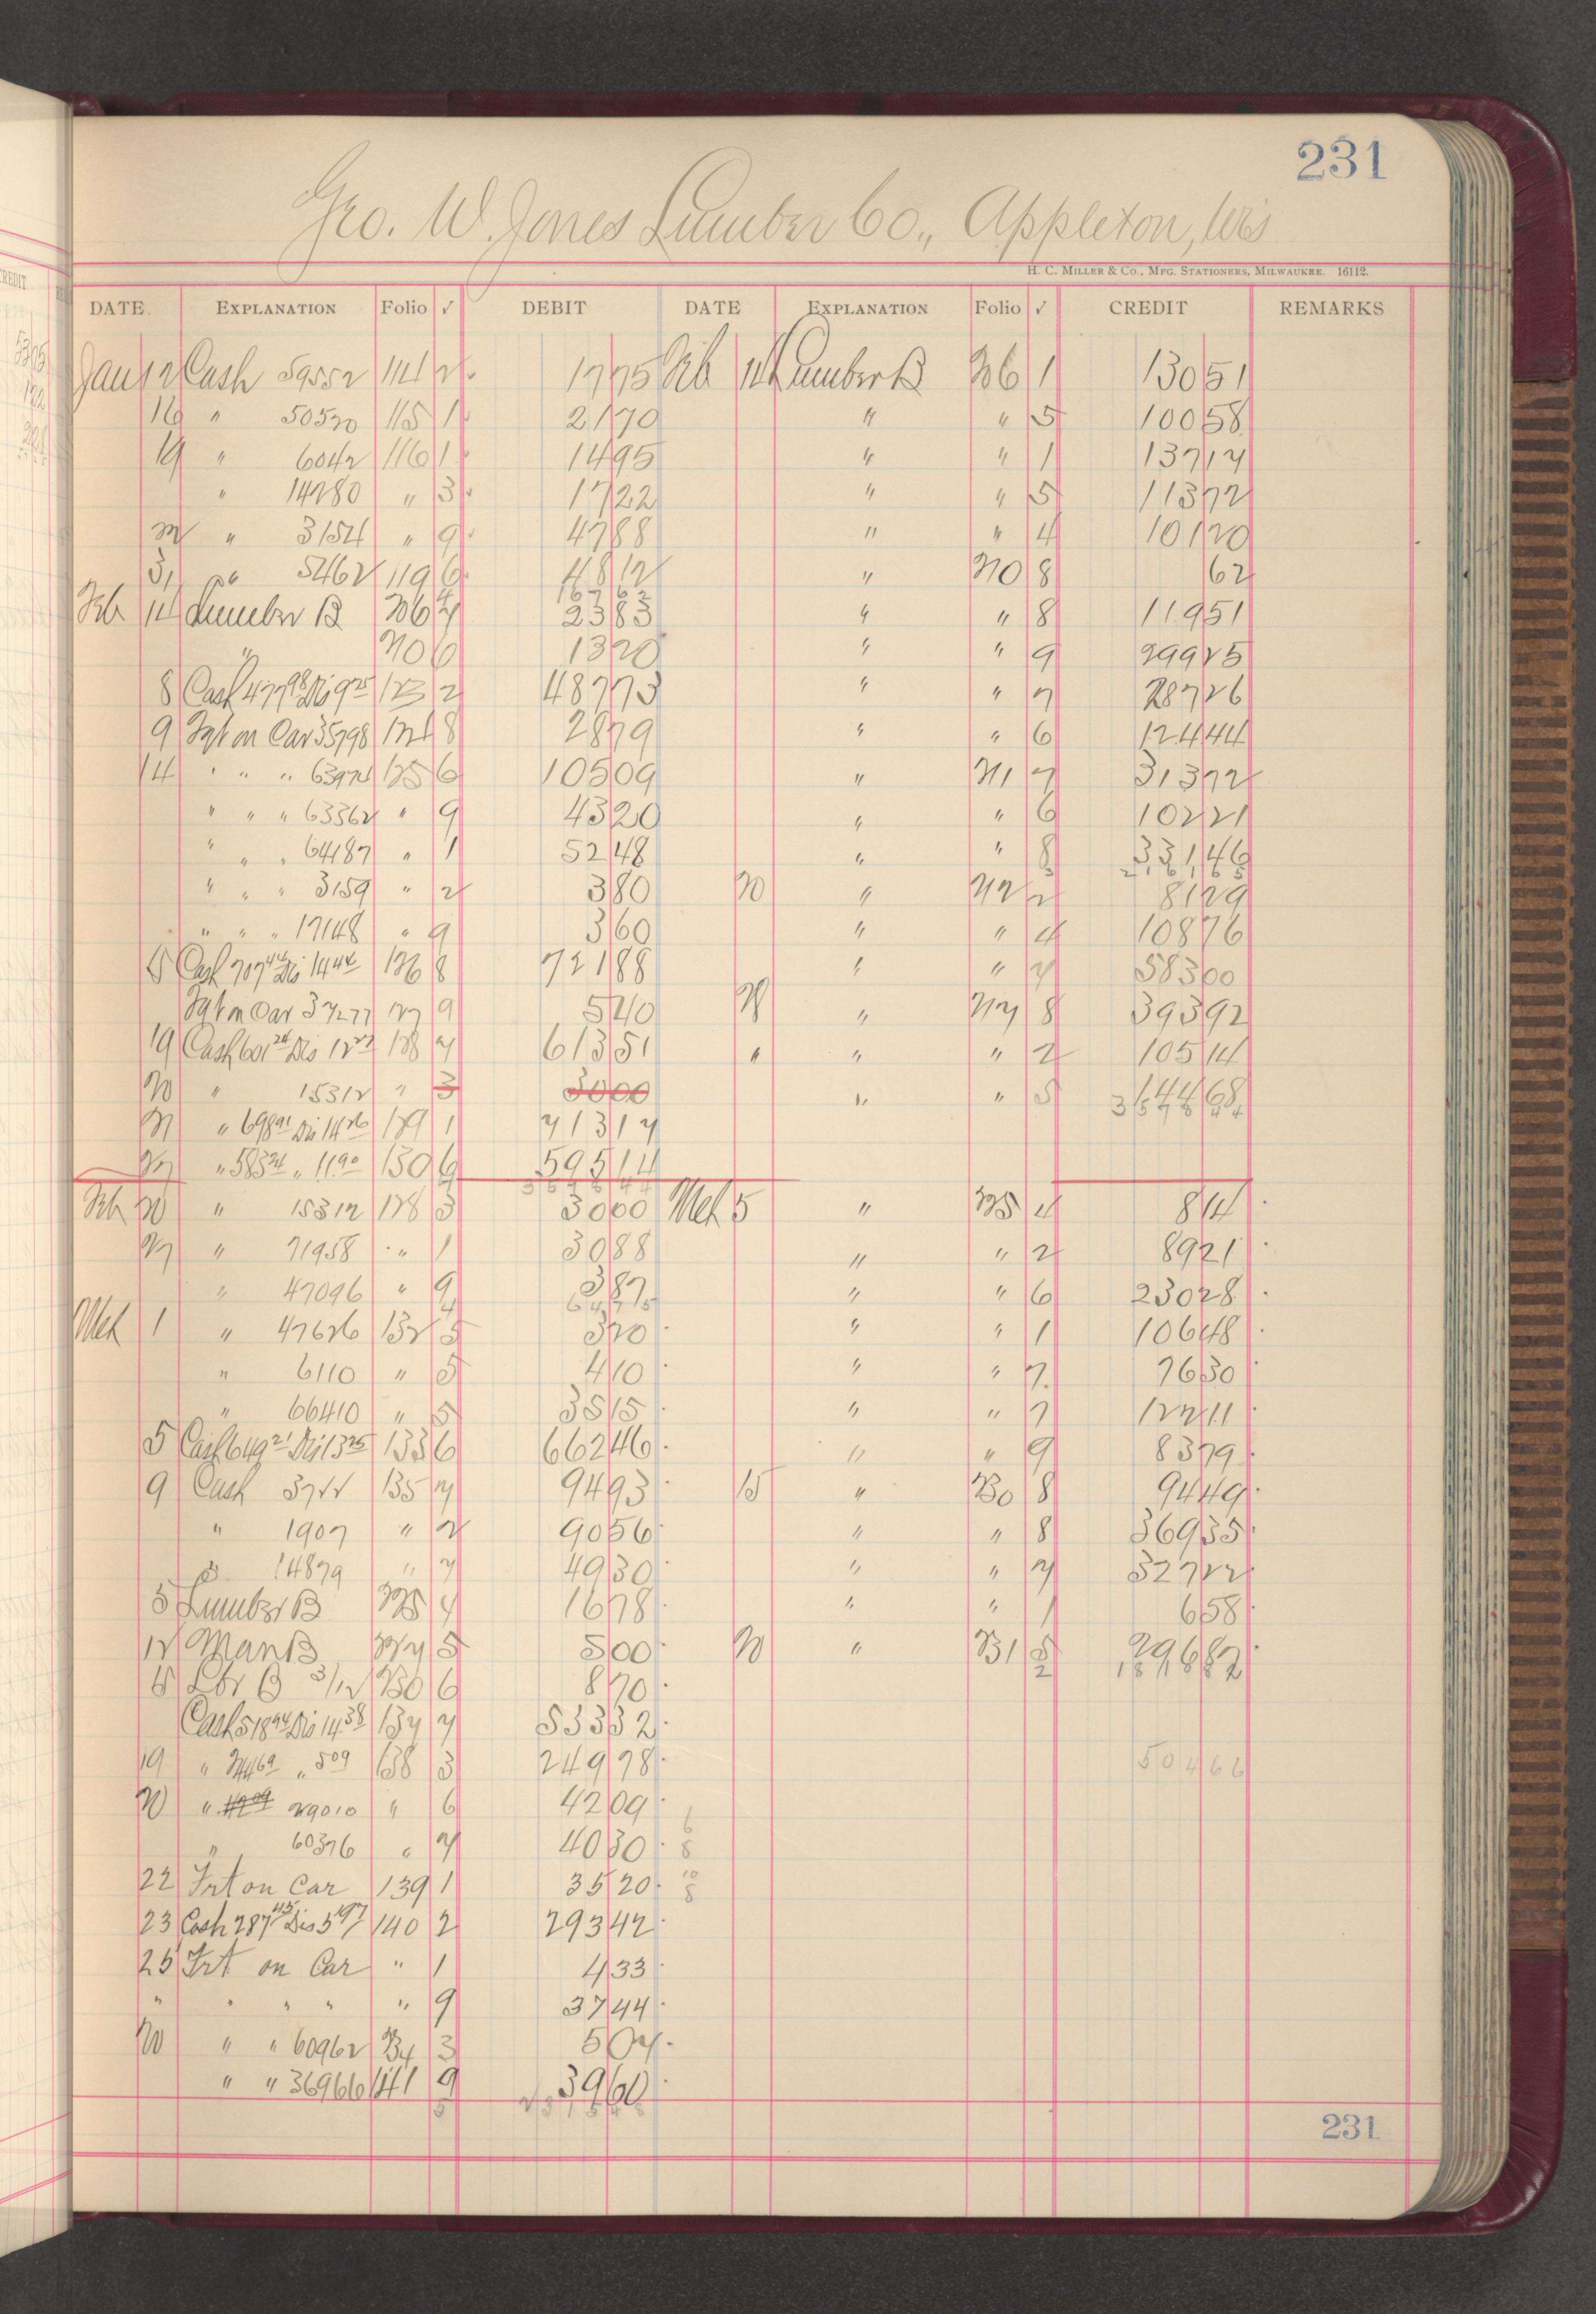 231
Geo. W. Jones Lumber Co., Appleton, Wis
H. C. Miller & Co., Mfg. Stationers, Milwaukee. 16112.
DATE. Explanation Folio √ DEBIT DATE Explanation Folio √ CREDIT REMARKS
Jan 12 Cash 59552 114 2 1775 Feb 14 Lumber B 206 1 13051
16 " 50520 115 1 2170 " " 5 10058
19 " 6042 116 1 1495 " " 1 13714
" 14280 " 3 1722 " " 5 11372
" 3154 " 9 4788 " " 4 10120
31 " 5462 119 6 4812 " 210 8 62
16762
Feb 14 Lumber B 206 4 2383 " " 8 11951
" 210 6 1320 " " 9 29925
8 Cash 477 98 Dis 9 75 123 2 48773 " " 7 28726
9 Frt on Car 35798 124 8 2879 " " 6 12444
14 " " " 63974 125 6 10509 " 211 7 31372
" " " 63362 " 9 4320 " " 6 10221
" " " 64187 " 1 5248 " " 8 33146
" " " 3159 " 2 380 20 " 212 2 8129
" " " 17148 " 9 360 " " 4 10876
15 Cash 707 44 Dis 14 44 126 8 72188 " " 4 58300
Frt on Car 37277 127 9 540 28 " 217 8 39392
19 Cash 601 24 Dis 12 27 128 7 61351 " " " 2 10514
20 " 15312 " 3 3000 " " 5 14468
357844
21 " 698 91 Dis 14 26 129 1 71317
27 " 583 24 " 11 90 130 6 59514
357844
Feb 20 " 15312 128 3 3000 Mch 5 " 225 4 814
27 " 71958 " 1 3088 " " 2 8921
" 47096 " 9 387 " " 6 23028
6475
Mch 1 " 47626 132 5 320 " " 1 10648
" 6110 " 5 410 " " 7 7630
" 66410 " 5 3515 " " 7 12211
5 Cash 649 21 Dis 13 25 133 6 66246 " " 9 8379
9 Cash 3722 135 7 9493 15 " 230 8 9449
" 1907 " 2 9056 " " 8 36935
" 14879 " 7 4930 " " 7 32722
5 Lumber B 225 4 1678 " " 1 658
12 Man B 5 500 20 " 231 5 29687
15 Lbr B 3/12 230 6 870
Cash 518 94 Dis 14 38 137 7 53332
19 " 244 69 " 5 09 138 3 24978 50466
20 " 29010 " 6 4209
" 60376 " 7 4030
22 Frt on Car 139 1 3520
23 Cash 287 45 Dis 5 97 140 2 29342
25 Frt on Car " 1 433
" " " " " 9 3744
20 " " 60962 234 3 504
" " 36966 141 9 3960
231